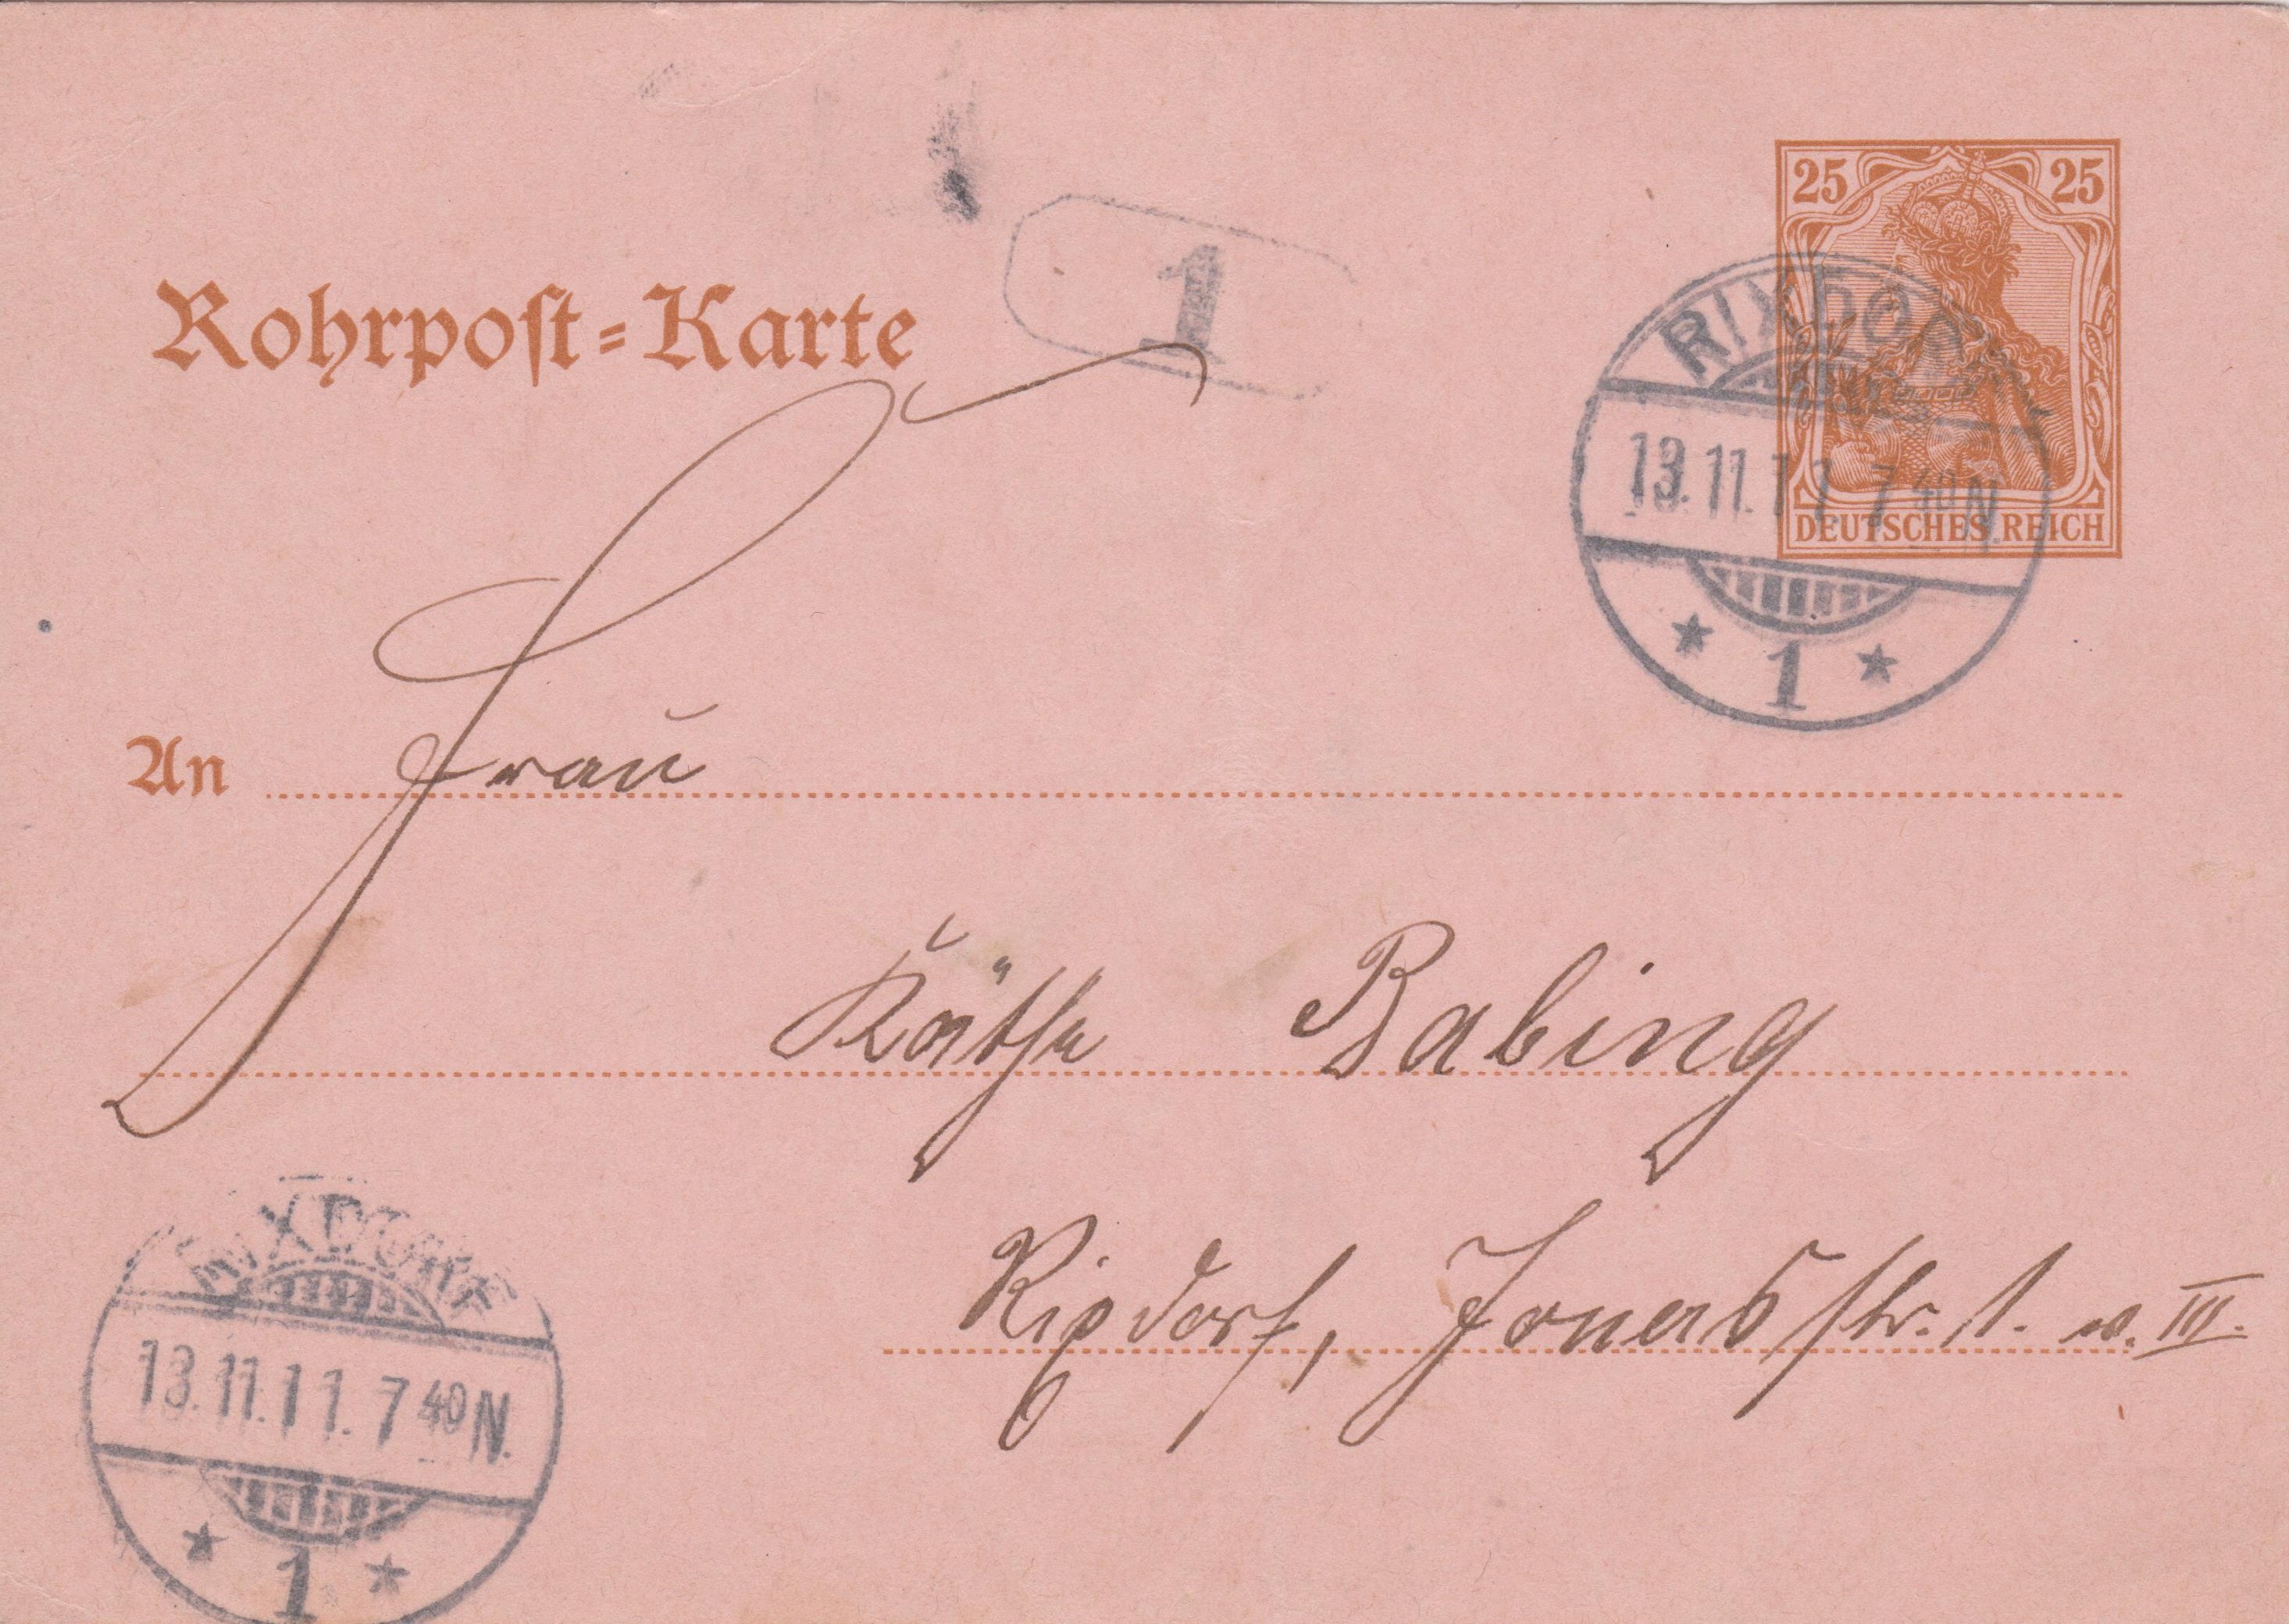 25 25
DEUTSCHES REICH
Rohrpost-Karte
1
RIXDORF
13.11.11. 7 40 N.
* 1 *
An Frau
Käthe Babing
Rixdorf, Jonasstr. 1. v. III.
RIXDORF
13.11.11. 7 40 N.
* 1 *